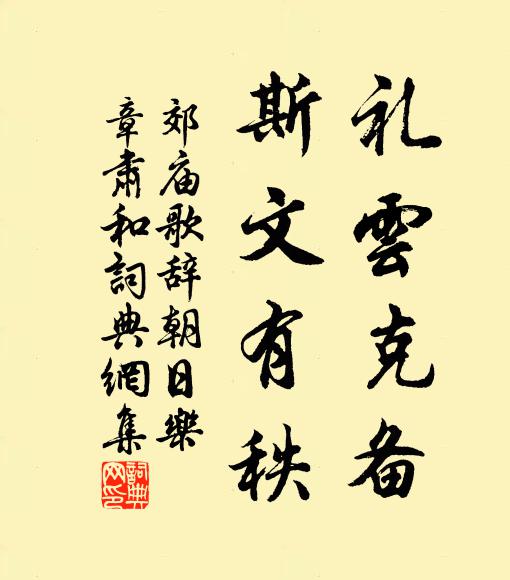 礼雲克备
斯文有秩
郊庙歌辞朝日樂
章肃和詞典網集
詞典网印